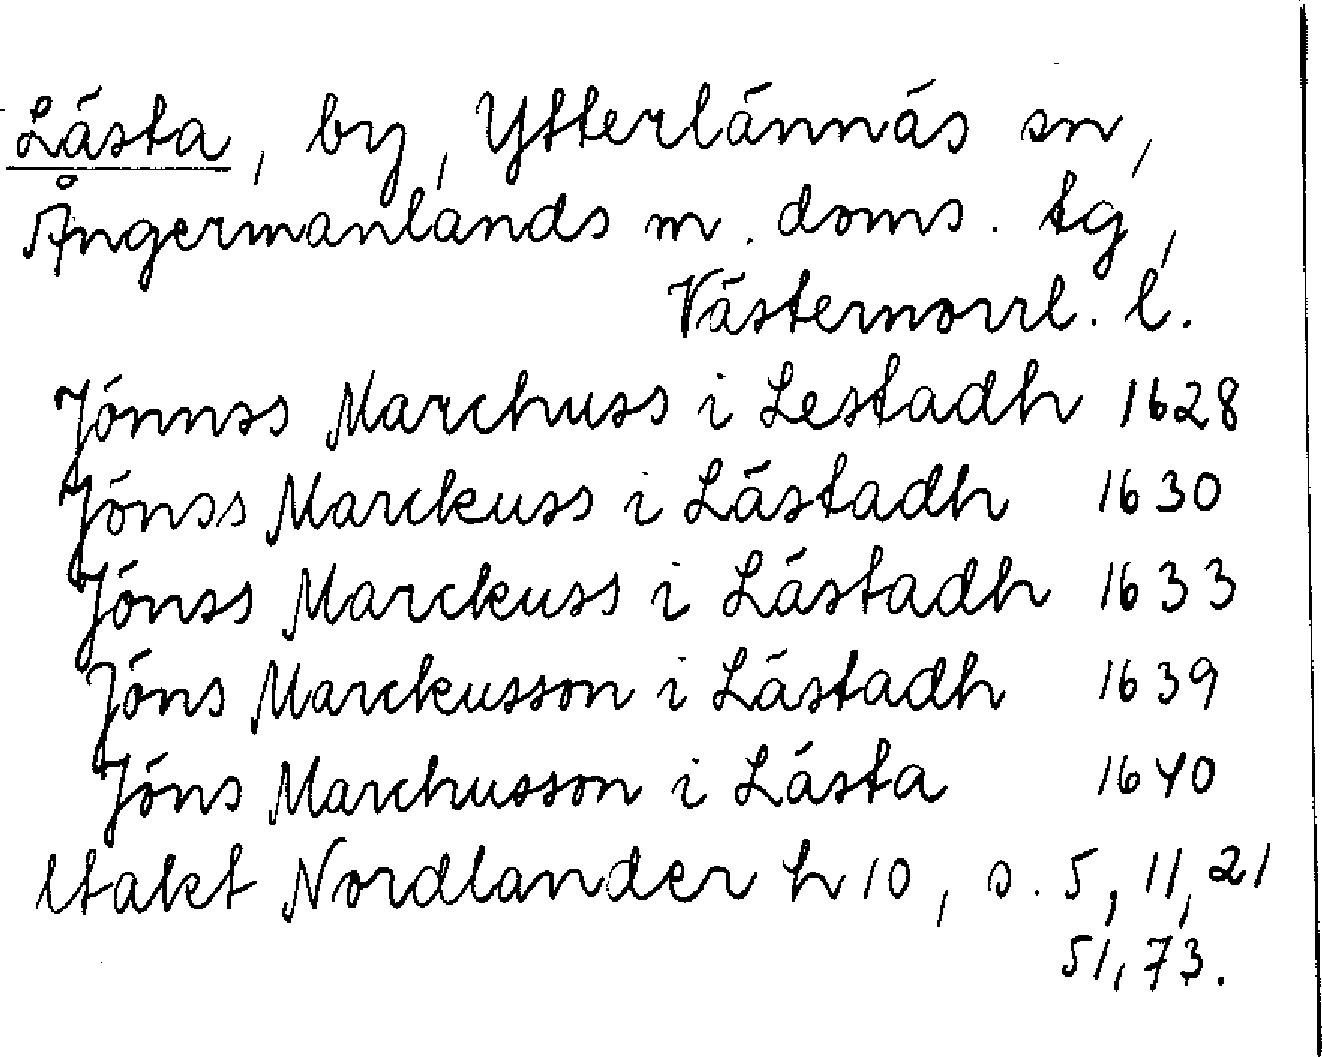 Lästa, by, Ytterlännäs sn,
Ångermanlands m. doms. tg,
Västernorrl. l.
Jönnss Marchuss i Lestadh 1628
Jönss Marckuss i Lästadh 1630
Jönss Marckuss i Lästadh 1633
Jöns Marckusson i Lästadh 1639
Jöns Marchusson i Lästa 1640
Utakt Nordlander h 10, s. 5, 11, 21
51, 73.